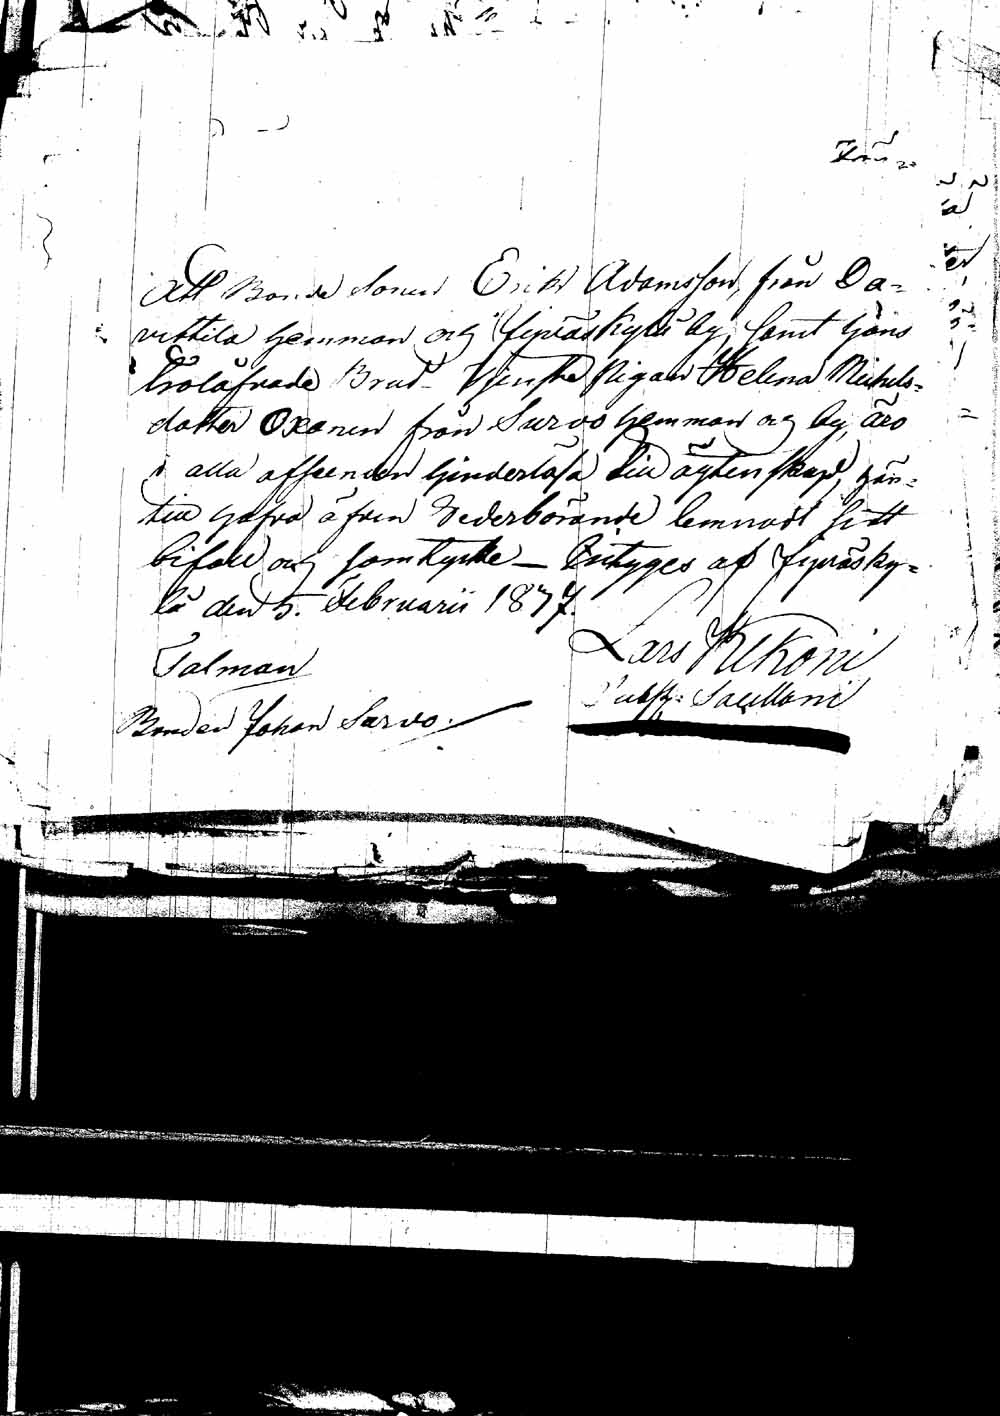 Att Bonde Sonen Erik Adamsson, från Da-
vittila hemman och Jyväskylä by, samt hans
trolåfvade Brud Tjenste Pigan Helena Mickels-
dotter Oxanen från Survo hemman och by, äro
i alla afseenden hinderlösa till ägtenskap, här-
till hafva äfven Vederbörande lemnadt sitt
bifall och samtycke — Intygas af Jyväsky-
lä den 5. Februarii 1877.
Talman
Lars Kekoni
Bonden Johan Survo.